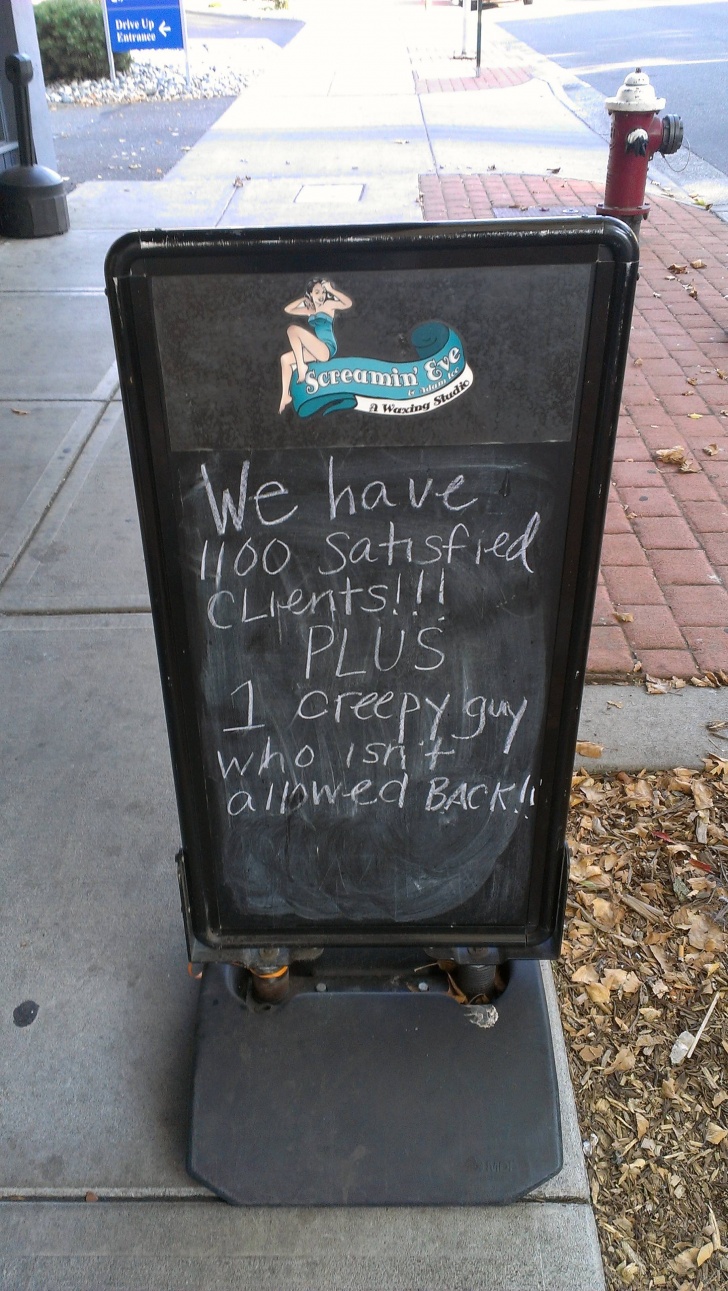 Drive Up
Entrance ←
Screamin' Eve
& Adam too
A Waxing Studio
We have
1100 satisfied
CLients!!!
PLUS
1 creepy guy
who isn't
allowed BACK!!